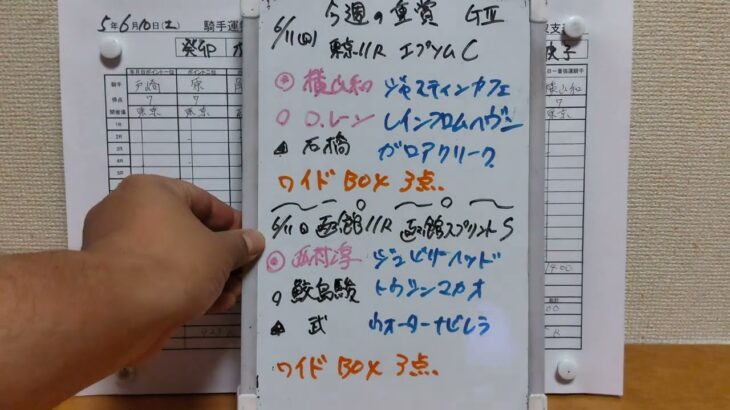 今週の重賞 GⅢ
6/11(日) 東京11R エプソムC
◎ 横山和 ジャスティンカフェ
○ D.レーン レインフロムヘヴン
▲ 石橋 ガロアクリーク
ワイドBOX 3点.
〜〜 o 〜 o 〜
6/11 日 函館11R 函館スプリントS
◎ 西村淳 ジュビリーヘッド
○ 鮫島駿 トウシンマカオ
▲ 武 ウォーターナビレラ
ワイドBOX 3点.
5年6月10日(土) 騎手運
癸卯
騎手 戸崎 原
得点 7 7
開催場 東京 東京
1R
2R
3R
4R
5R
支
横山和
7
東京